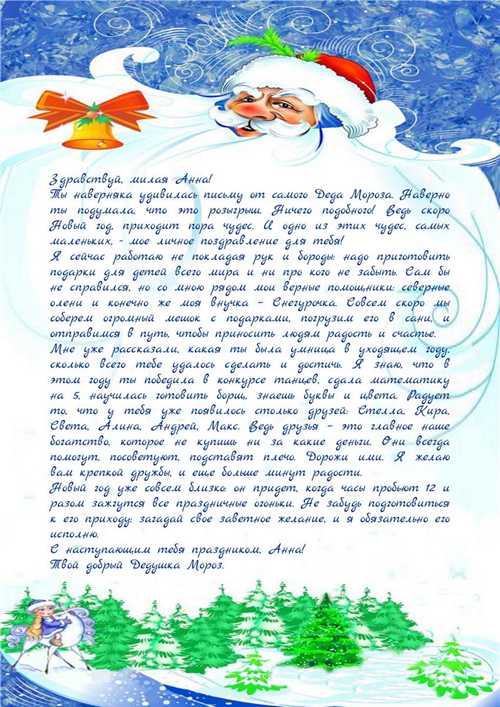 Здравствуй, милая Анна!
Ты наверняка удивилась письму от самого Деда Мороза. Наверно
ты подумала, что это розыгрыш. Ничего подобного! Ведь скоро
Новый год, приходит пора чудес. И одно из этих чудес, самых
маленьких, - мое личное поздравление для тебя!
Я сейчас работаю не покладая рук и бороды: надо приготовить
подарки для детей всего мира и ни про кого не забыть. Сам бы
не справился, но со мною рядом мои верные помощники: северные
олени и конечно же моя внучка - Снегурочка. Совсем скоро мы
соберем огромный мешок с подарками, погрузим его в сани, и
отправимся в путь, чтобы приносить людям радость и счастье.
Мне уже рассказали, какая ты была умница в уходящем году,
сколько всего тебе удалось сделать и достичь. Я знаю, что в
этом году ты победила в конкурсе танцев, сдала математику
на 5, научилась готовить борщ, знаешь буквы и цвета. Радует
то, что у тебя уже появилось столько друзей: Стелла, Кира,
Света, Алина, Андрей, Макс. Ведь друзья - это главное наше
богатство, которое не купишь ни за какие деньги. Они всегда
помогут, посоветуют, подставят плечо. Дорожи ими. Я желаю
вам крепкой дружбы, и еще больше минут радости.
Новый год уже совсем близко: он придет, когда часы пробьют 12 и
разом зажгутся все праздничные огоньки. Не забудь подготовиться
к его приходу: загадай свое заветное желание, и я обязательно его
исполню.
С наступающим тебя праздником, Анна!
Твой добрый Дедушка Мороз.